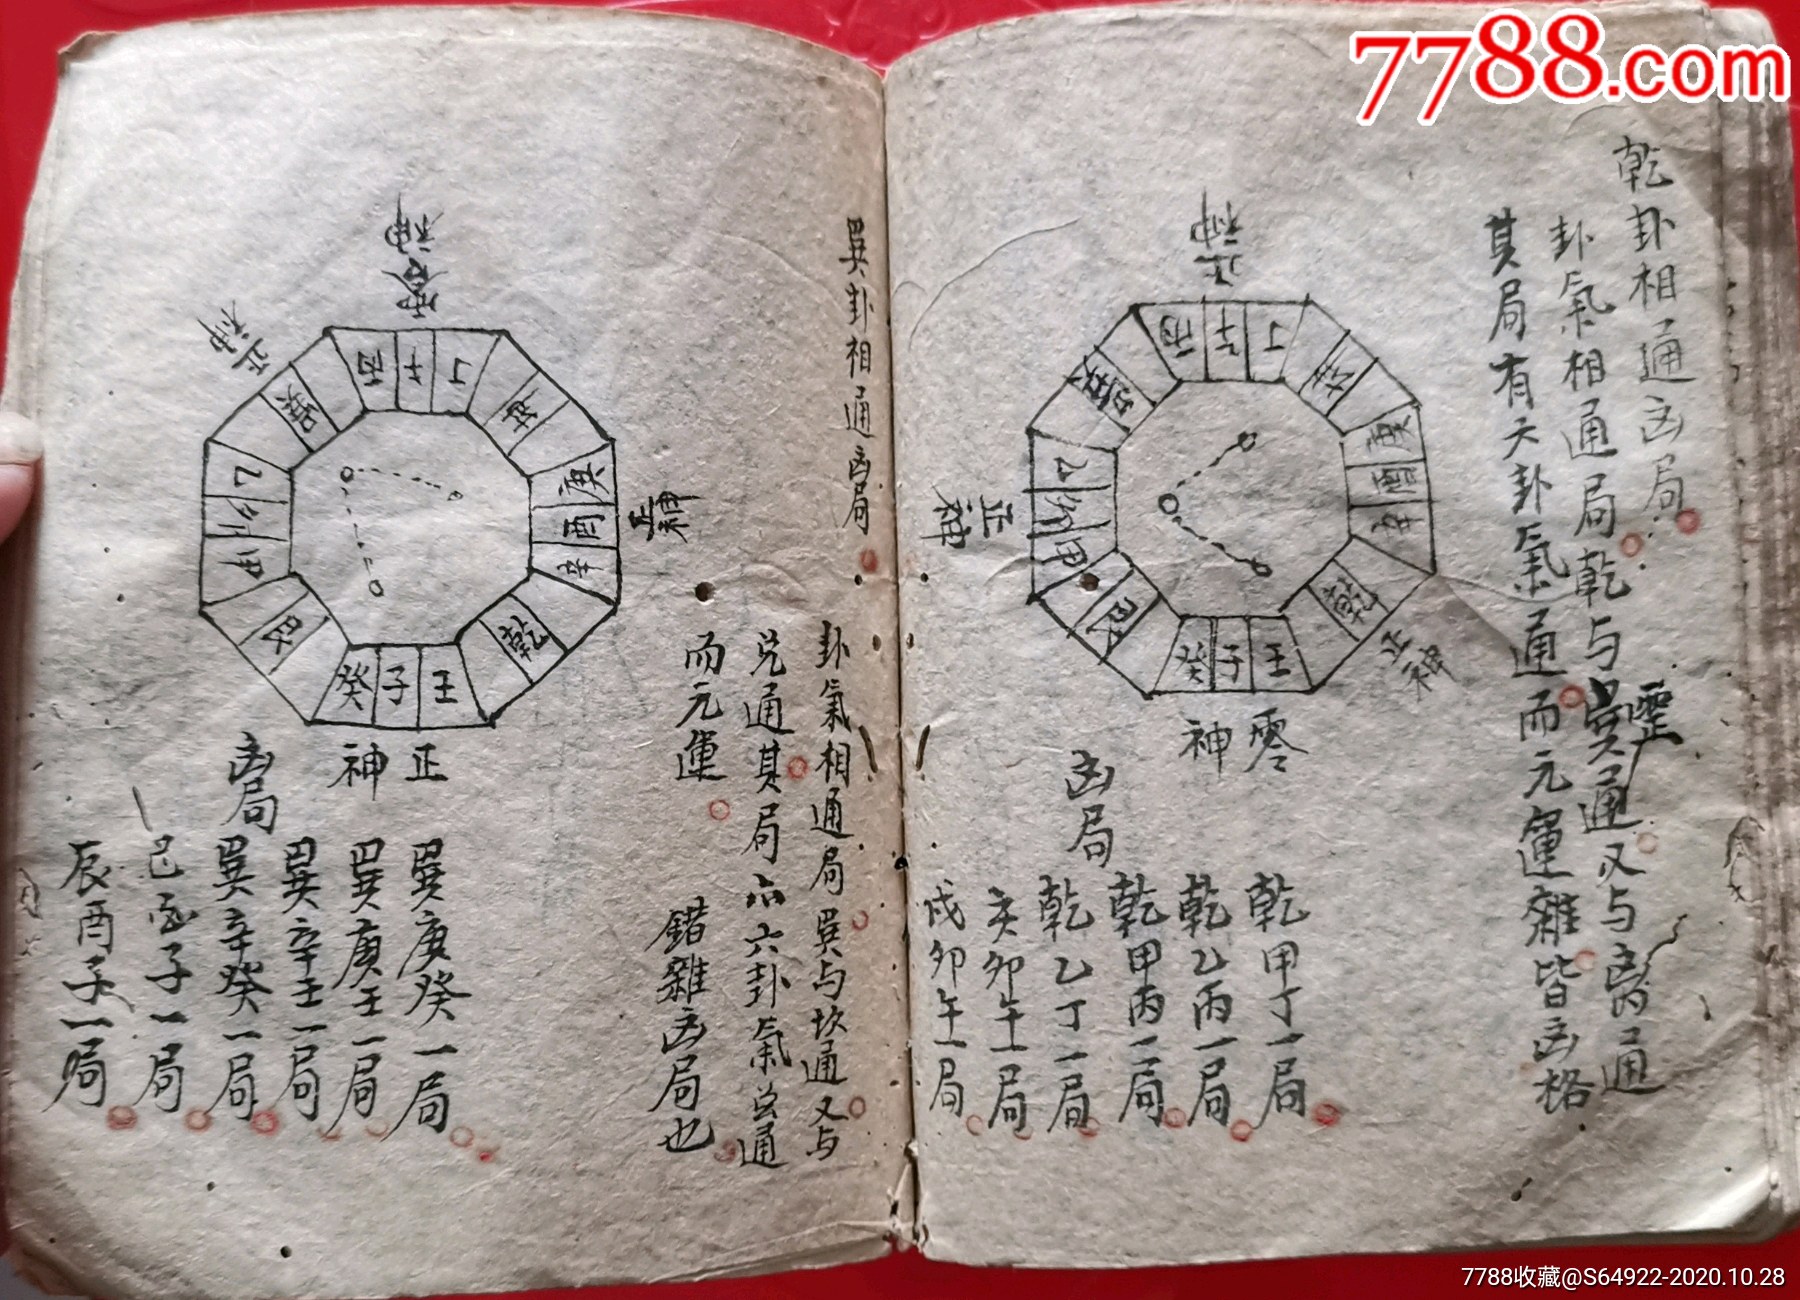 7788.com
乾卦相通凶局
卦氣相通局乾与巽通又与离通
其局有六卦氣通而元運雜皆凶格
正神
丙午丁
坤
庚酉辛
乾
壬子癸
艮
甲卯乙
巽
正神
正神
零神
凶局
乾甲丁一局
乾乙丙一局
乾甲丙一局
乾乙丁一局
亥卯午一局
戌卯午一局
巽卦相通凶局
卦氣相通局巽与坎通又与
兑通其局亦六卦氣总通
而元運
錯雜凶局也
零神
正神
丙午丁
坤
庚酉辛
乾
壬子癸
艮
甲卯乙
巽
正神
正神
凶局
巽庚癸一局
巽庚壬一局
巽辛壬一局
巽辛癸一局
巳酉子一局
辰酉子一局
7788收藏@S64922-2020.10.28